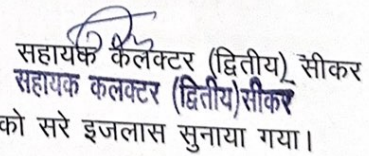 सहायक कैलक्टर (द्वितीय) सीकर
सहायक कलक्टर (द्वितीय)सीकर
को सरे इजलास सुनाया गया।